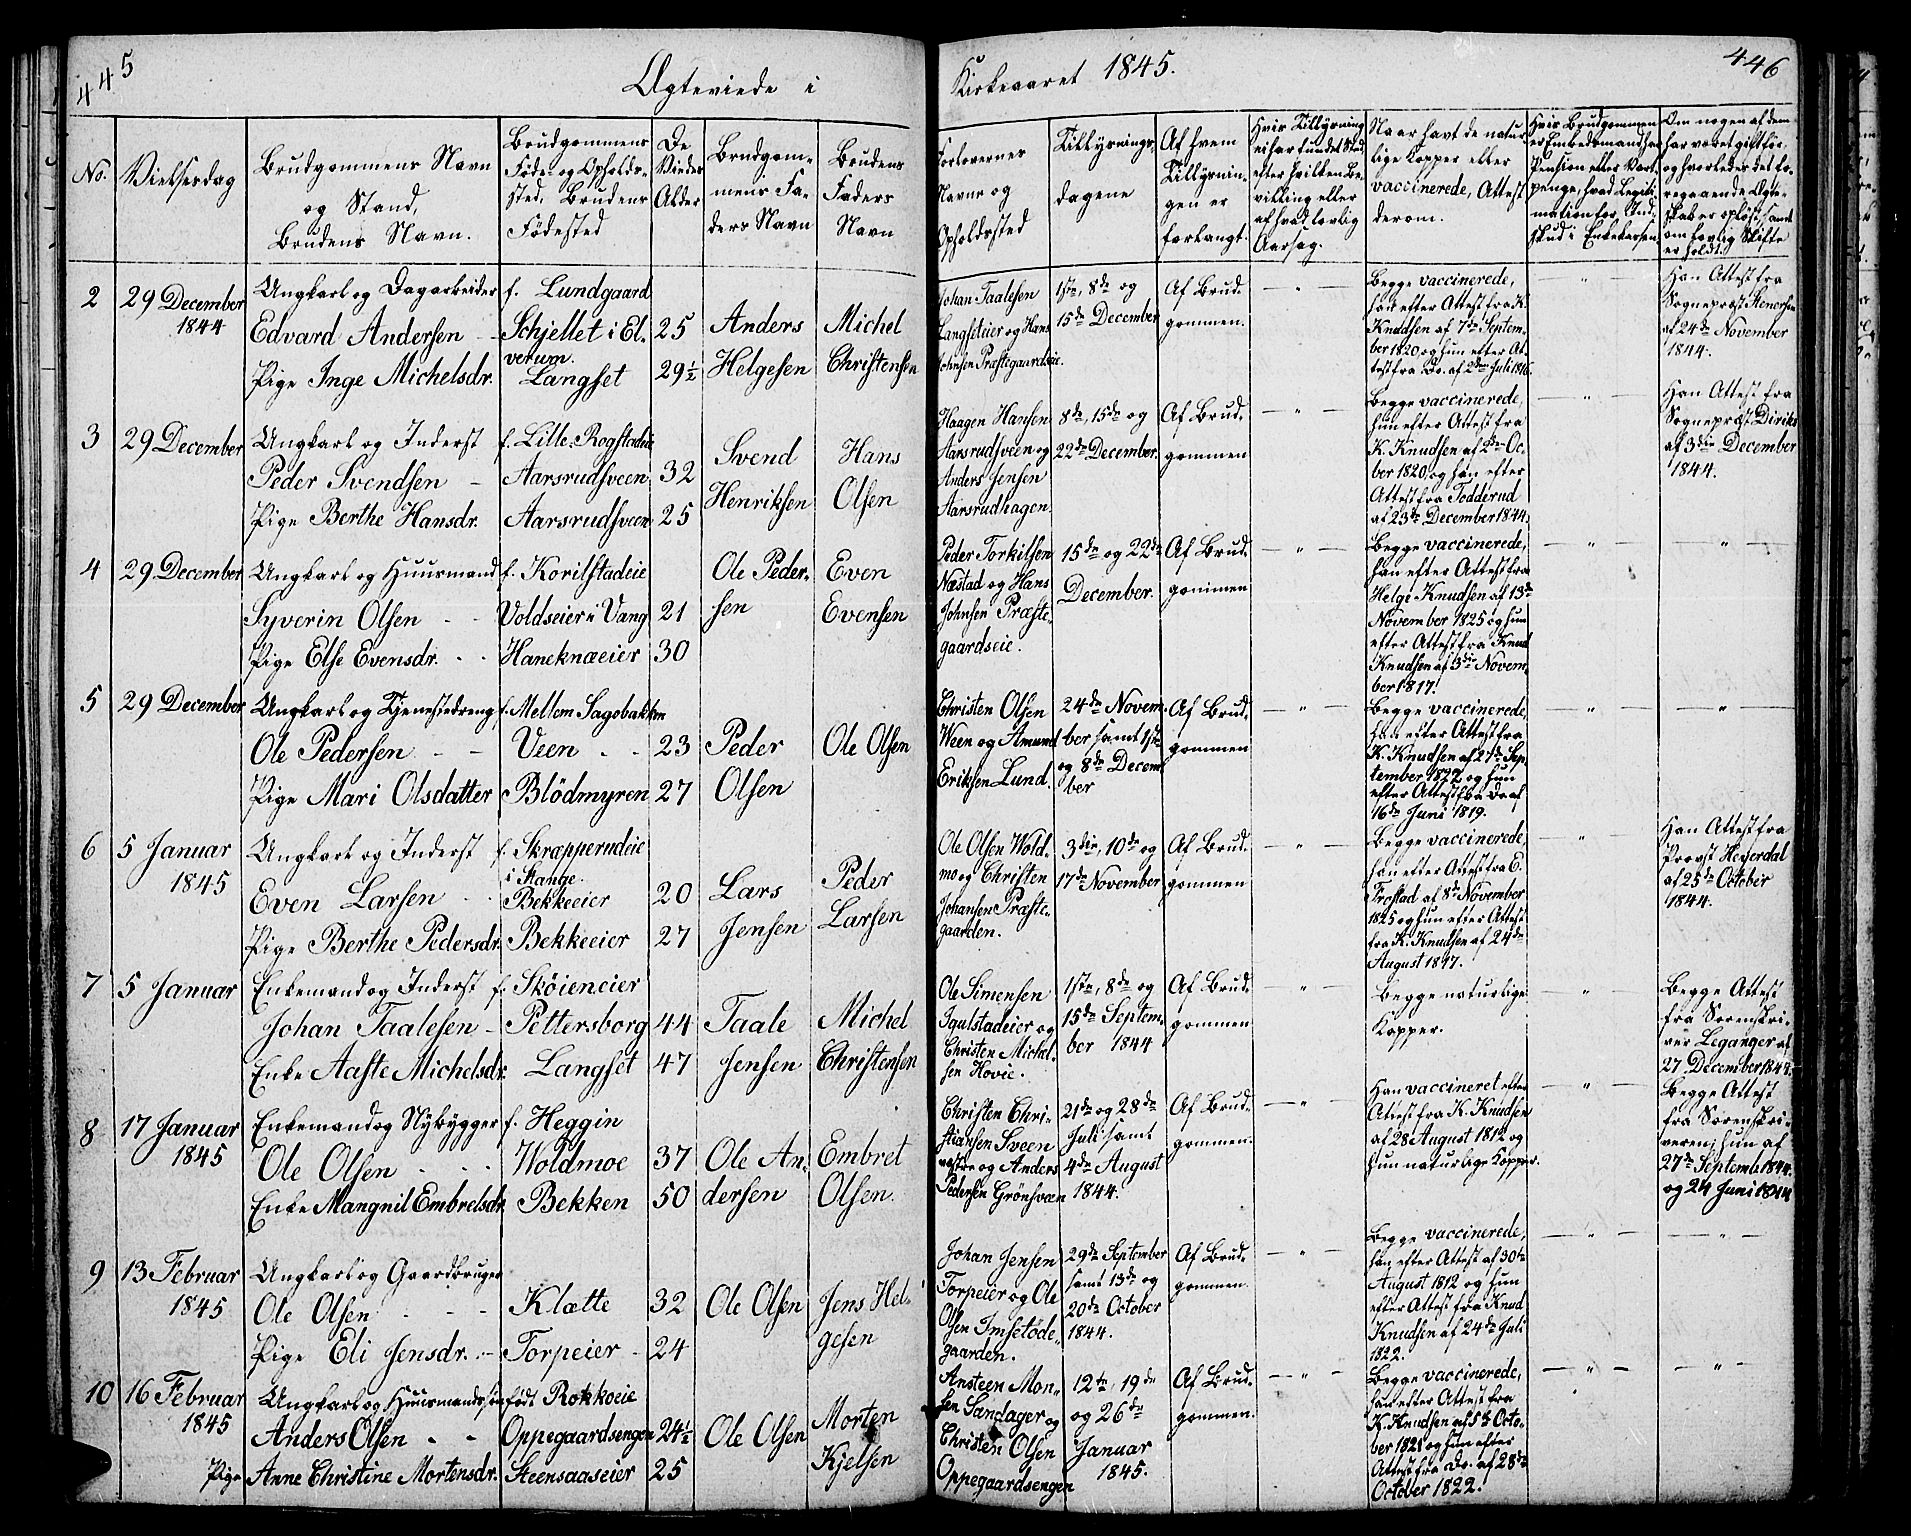 445
Ægteviede i
No.
Vielsesdag
Brudgommens Navn
og Stand,
Brudens Navn.
Brudgommens
Føde- og Opholds-
sted, Brudens
Fødested
De
Viedes
Alder
Brudgom-
mens Fa-
ders Navn
Brudens
Faders
Navn
2
29 December
1844
Ungkarl og Dagarbeider
Edvard Andersen
Pige Inge Michelsdr.
f. Lundgaard
Schjellet i El-
verum.
Langset
25
29½
Anders
Helgesen
Michel
Christensen
3
29 December
Ungkarl og Inderst
Peder Svendsen
Pige Berthe Hansdr.
f. Lille-Rogstadeie
Aarsrudsveen
Aarsrudsveen
32
25
Svend
Henriksen
Hans
Olsen
4
29 December
Ungkarl og Huusmand
Syverin Olsen
Pige Else Evensdr.
f. Korilstadeie
Voldseier i Vang
Haneknæeier
21
30
Ole Peder-
sen
Even
Evensen
5
29 December
Ungkarl og Tjenestedreng
Ole Pedersen
Pige Mari Olsdatter
f. Mellem Sagobakken
Veen
Blödmyren
23
27
Peder
Olsen
Ole Olsen
6
5 Januar
1845
Ungkarl og Inderst
Even Larsen
Pige Berthe Pedersdr.
f. Skrapperudeie
i Stange.
Bekkeeier
Bekkeeier
20
27
Lars
Jensen
Peder
Larsen
7
5 Januar
Enkemand og Inderst
Johan Taalesen
Enke Aaste Michelsdr.
f. Sköieneier
Pettersborg
Langset
44
47
Taale
Jensen
Michel
Christensen
8
17 Januar
1845
Enkemand og Nybygger
Ole Olsen
Enke Mangnil Embretsdr.
f. Heggin
Woldmoe
Bekken
37
50
Ole An-
dersen
Embret
Olsen.
9
13 Februar
1845
Ungkarl og Gaardbruger
Ole Olsen
Pige Eli Jensdr.
Klætte
Torpeier
32
24
Ole Olsen
Jens Hel-
gesen
10
16 Februar
1845
Ungkarl og Huusmandssøn
Anders Olsen
Pige Anne Christine Mortensdr.
født Rokkoeie
Oppegaardsengen
Steensaaseier
24½
25
Ole Olsen
Morten
Kjelsen
Kirkeaaret 1845.
446
Forlovernes
Navne og
Opholdssted
Tillysnings-
dagene
Af hvem
Tillysnin-
gen er
forlangt.
Hvis Tillysning
ei har fundet Sted,
efter hvilken Be-
villing eller
af hvad lovlig
Aarsag.
Naar havt de natur-
lige Kopper eller
vaccinerede, Attest
derom.
Hvis Brudgommen
er Embedsmand har
Pension eller Vart-
penge, hvad Legiti-
mation for, Ind-
skud i Enkekassen.
Om nogen af dem
har været gift før,
og hvorledes det fo-
regaaende Ægte-
skab er opløst, samt
om lovlig Skifte
er holdt.
Johan Taalesen
Langseteier og Hans
Johnsen Præstegaardseie.
1ste, 8de og
15de December
Af Brud-
gommen.
Begge vaccinerede,
han efter Attest fra K.
Knudsen af 7de Septem-
ber 1820, og hun efter At-
test fra Do. af 2den Juli 1816.
Han Attest fra
Sognepræst Stenersen
af 24de November
1844.
Haagen Hansen
Aarsrudsveen og
Anders Jensen
Aarsrudhagen.
8de, 15de og
22de December.
Af Brud-
gommen
Begge vaccinerede,
hun efter Attest fra
K. Knudsen af 2de Oc-
ber 1820, og han efter
Attest fra Todderud
af 23de December 1844.
Han Attest fra
Sognepræst Diriks
af 3die December
1844.
Peder Torkilsen
Næstad og Hans
Johnsen Præste-
gaardseie.
15de og 22de
December.
Af Brud-
gommen
Begge vaccinerede,
han efter Attest fra
Helge Knudsen af 13de
November 1825 og hun
efter Attest fra Knud
Knudsen af 3die Novem-
ber 1817.
Christen Olsen
Ween og Amund
Eriksen Lund.
24de Novem-
ber samt 1ste
og 8de Decem-
ber
Af Brud-
gommen
Begge vaccinerede,
han efter Attest fra
K. Knudsen af 27de Sep-
tember 1822 og hun
efter Attest fra Do. af
16de Juni 1819.
Ole Olsen Wold-
mo og Christen
Johansen Præste-
gaarden.
3die, 10de og
17de November
Af Brud-
gommen
Begge vaccinerede,
han efter Attest fra E.
Frostad af 8de November
1825 og hun efter Attest
fra K. Knudsen af 24de
August 1817.
Han Attest fra
Provst Heyerdal
af 25de October
1844.
Ole Simensen
Igulstadeier og
Christen Michel-
sen Hovie.
1ste, 8de og
15de Septem-
ber 1844
Af Brud-
gommen
Begge naturlige
Kopper.
Begge Attest
fra Sorenskri-
ver Leganger af
27 December 1844.
Christen Chri-
stiansen Sveen
østre og Anders
Pedersen Grönsveen
21de og 28de
Juli samt
4de August
1844.
Af Brud-
gommen.
Han vaccineret efter
Attest fra K. Knudsen
af 28 August 1812 og
hun naturlige Kopper.
Begge Attest
fra Sorenskri-
veren, hun af
27de Septemb. 1844
og 24 Juni 1844
Johan Jensen
Torpeier og Ole
Olsen Imsetöde-
gaarden.
29de September
samt 13de og
20de October
1844.
Af Brud-
gommen.
Begge vaccinerede,
han efter Attest af 30te
August 1812 og hun
efter Attest fra Knud
Knudsen af 24de Juli
1822.
Ansteen Mon-
sen Sandager og
Christen Olsen
Oppegaardsengen
12te, 19de
og 26de
Januar
1845.
Af Brud-
gommen.
Begge vaccinerede,
han efter Attest fra
K. Knudsen af 5te Octo-
ber 1821 og hun efter
Attest fra Do. af 28de
October 1822.